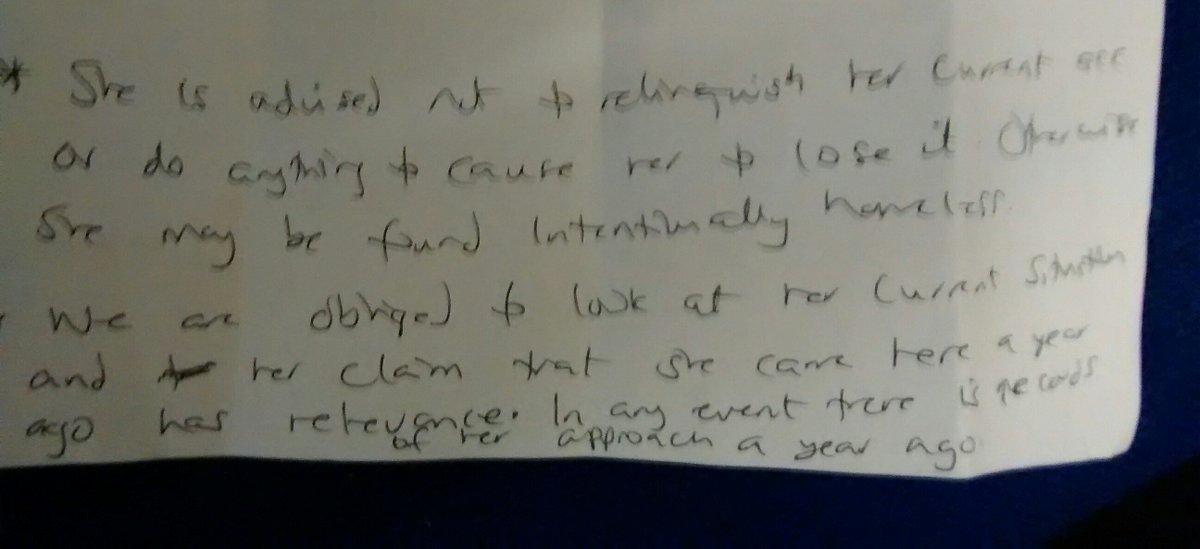 * She is advised not to relinquish her current acc
or do anything to cause her to lose it. Otherwise
She may be found Intentionally homeless.
We are obliged to look at her current situation
and her claim that she came here a year
ago has relevance. In any event there is records
of her approach a year ago